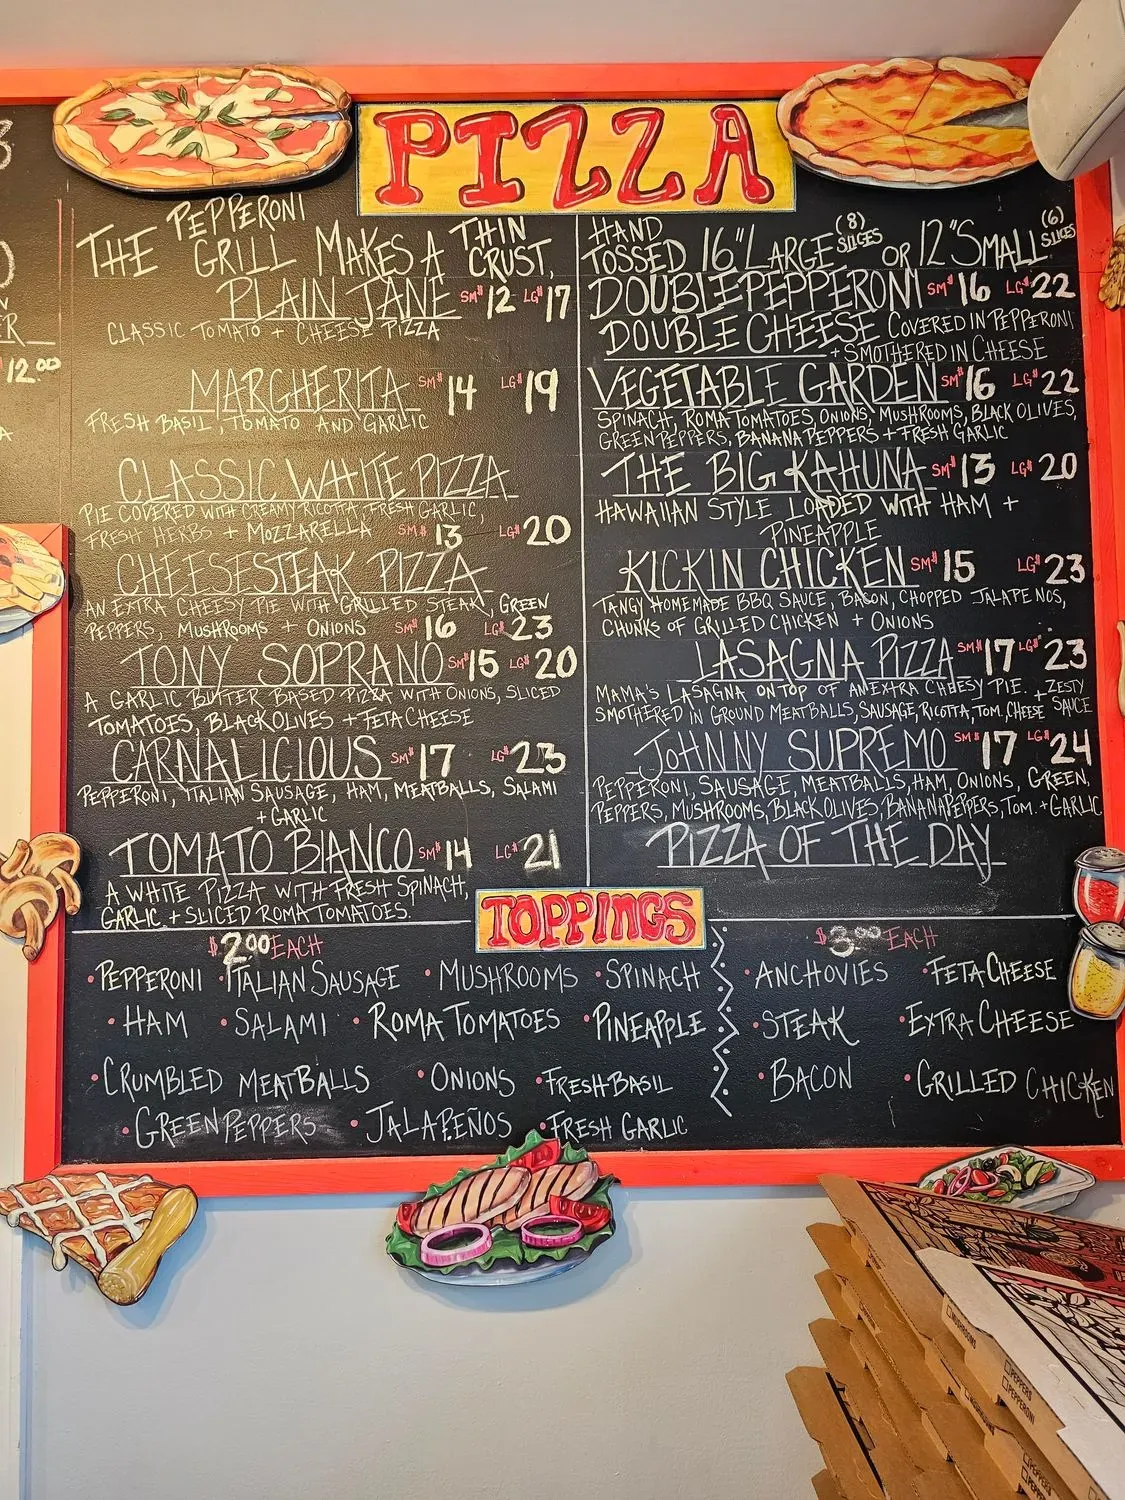 PIZZA
THE PEPPERONI GRILL MAKES A THIN CRUST,
HAND TOSSED 16" LARGE (8) SLICES OR 12" SMALL (6) SLICES
PLAIN JANE SM$ 12 LG$ 17
CLASSIC TOMATO + CHEESE PIZZA
MARGHERITA SM$ 14 LG$ 19
FRESH BASIL, TOMATO AND GARLIC
CLASSIC WHITE PIZZA
PIE COVERED WITH CREAMY RICOTTA, FRESH GARLIC,
FRESH HERBS + MOZZARELLA SM$ 13 LG$ 20
CHEESESTEAK PIZZA
AN EXTRA CHEESY PIE WITH GRILLED STEAK, GREEN
PEPPERS, MUSHROOMS + ONIONS SM$ 16 LG$ 23
TONY SOPRANO SM$ 15 LG$ 20
A GARLIC BUTTER BASED PIZZA WITH ONIONS, SLICED
TOMATOES, BLACK OLIVES + FETA CHEESE
CARNALICIOUS SM$ 17 LG$ 23
PEPPERONI, ITALIAN SAUSAGE, HAM, MEATBALLS, SALAMI
+ GARLIC
TOMATO BIANCO SM$ 14 LG$ 21
A WHITE PIZZA WITH FRESH SPINACH,
GARLIC + SLICED ROMA TOMATOES.
DOUBLE PEPPERONI SM$ 16 LG$ 22
DOUBLE CHEESE COVERED IN PEPPERONI
+ SMOTHERED IN CHEESE
VEGETABLE GARDEN SM$ 16 LG$ 22
SPINACH, ROMA TOMATOES, ONIONS, MUSHROOMS, BLACK OLIVES,
GREEN PEPPERS, BANANA PEPPERS + FRESH GARLIC
THE BIG KAHUNA SM$ 13 LG$ 20
HAWAIIAN STYLE LOADED WITH HAM +
PINEAPPLE
KICKIN CHICKEN SM$ 15 LG$ 23
TANGY HOMEMADE BBQ SAUCE, BACON, CHOPPED JALAPENOS,
CHUNKS OF GRILLED CHICKEN + ONIONS
LASAGNA PIZZA SM$ 17 LG$ 23
MAMA'S LASAGNA ON TOP OF AN EXTRA CHEESY PIE. + ZESTY SAUCE
SMOTHERED IN GROUND MEATBALLS, SAUSAGE, RICOTTA, TOM, CHEESE
JOHNNY SUPREMO SM$ 17 LG$ 24
PEPPERONI, SAUSAGE, MEATBALLS, HAM, ONIONS, GREEN,
PEPPERS, MUSHROOMS, BLACK OLIVES, BANANA PEPPERS, TOM. + GARLIC
PIZZA OF THE DAY
TOPPINGS
$2.00 EACH
• PEPPERONI • ITALIAN SAUSAGE • MUSHROOMS • SPINACH
• HAM • SALAMI • ROMA TOMATOES • PINEAPPLE
• CRUMBLED MEATBALLS • ONIONS • FRESH BASIL
• GREEN PEPPERS • JALAPEÑOS • FRESH GARLIC
$3.00 EACH
• ANCHOVIES • FETA CHEESE
• STEAK • EXTRA CHEESE
• BACON • GRILLED CHICKEN
12.00
MUSHROOMS
PEPPERS
PEPPERONI